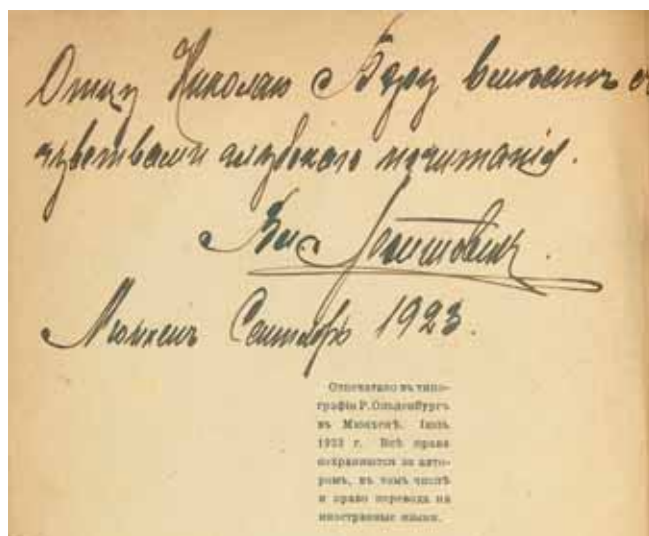 Отцу Николаю
чувствами глубокаго почитанія.
Мюнхенъ Сентябрь 1923.
Отпечатано въ типо-
графіи Р. Ольденбургъ
въ Мюнхенѣ. Іюль
1923 г. Всѣ права
сохраняются за авто-
ромъ, въ томъ числѣ
и право перевода на
иностранные языки.